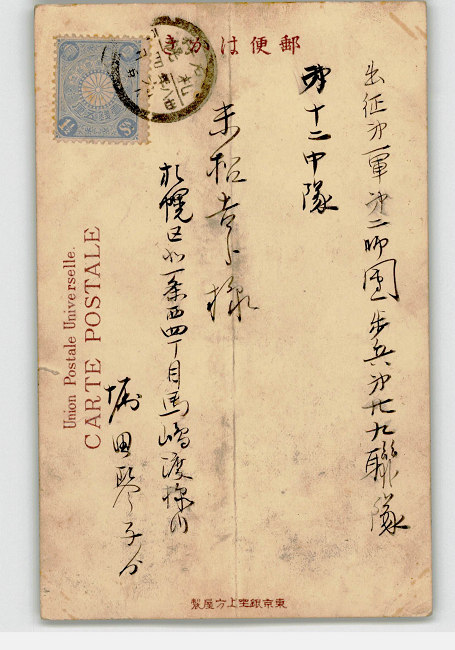 郵便はかき
出征第一軍第二師團歩兵第廿九聯隊
第十二中隊
末松吉 様
札幌区北一条西四丁目馬嶋渡様内
堀田琴子
Union Postale Universelle.
CARTE POSTALE
東京銀座上方屋製